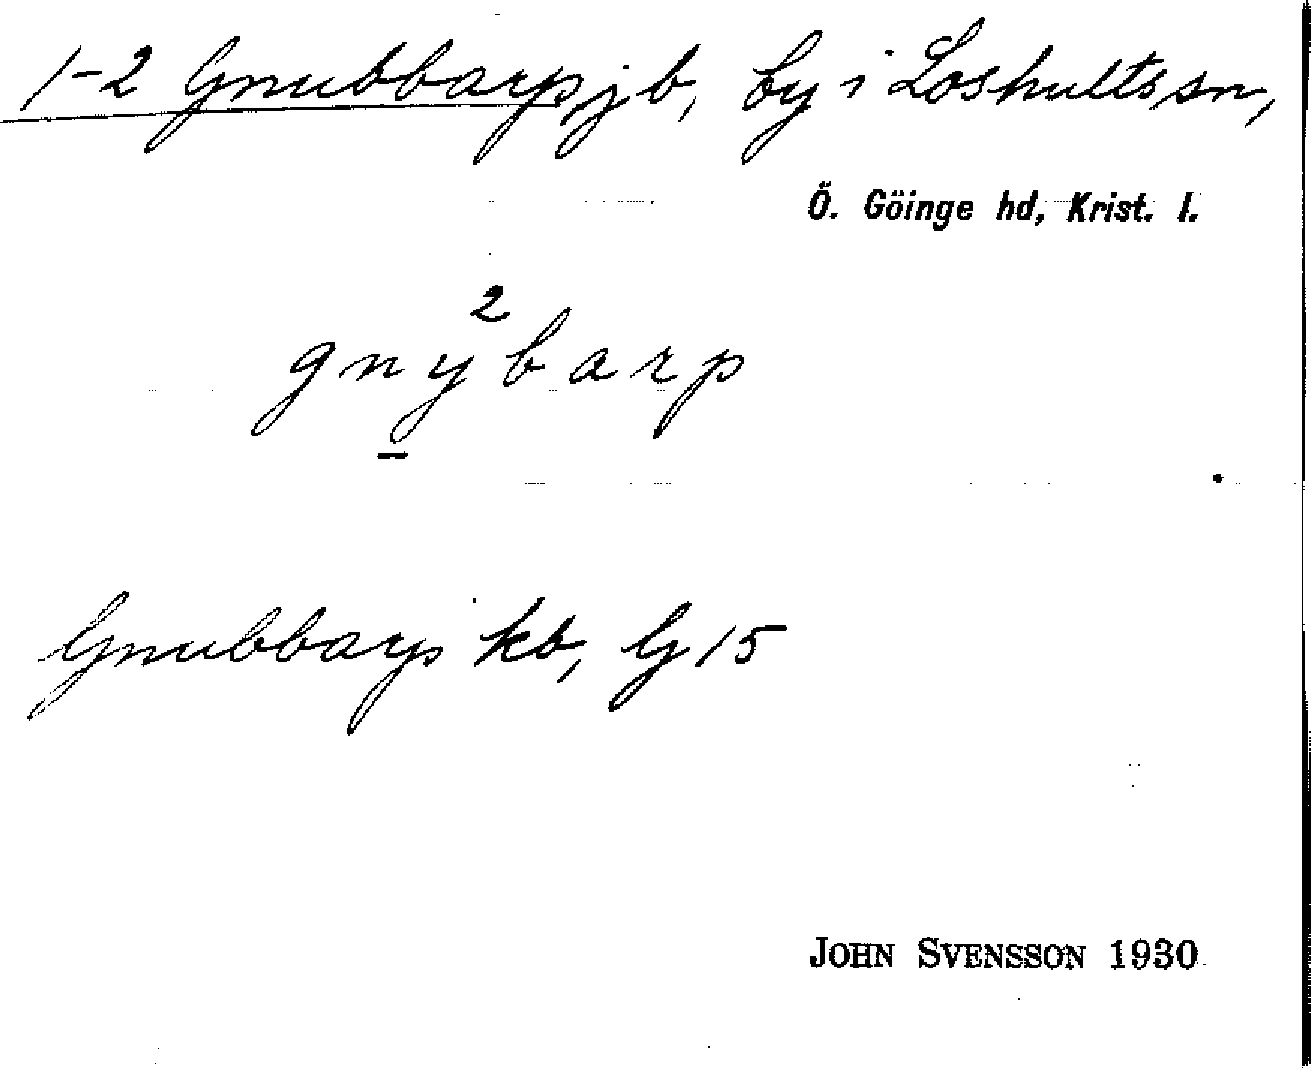 1-2 Gnubbarp, jb, by i Loshults sn,
Ö. Göinge hd, Krist. l.
2
gnybarp
Gnubbarp kb, G 15
JOHN SVENSSON 1930